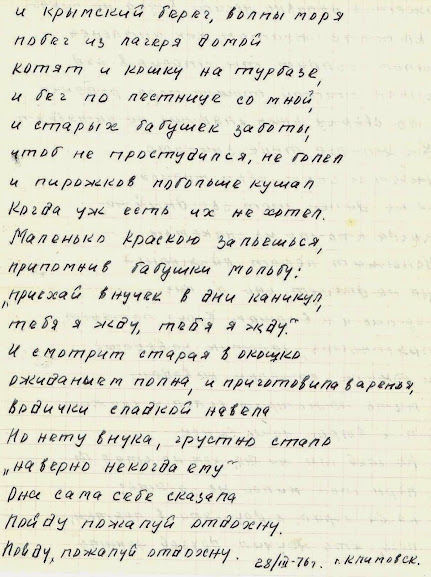 и крымский берег, волны моря
побег из лагеря домой
котят и кошку на турбазе,
и бег по лестнице со мной,
и старых бабушек заботы,
чтоб не простудился, не болел
и пирожков побольше кушал
Когда уж есть их не хотел.
Маленько краскою зальешься,
припомнив бабушки мольбу:
„приезжай внучек в дни каникул,
тебя я жду, тебя я жду."
И смотрит старая в окошко
ожиданьем полна, и приготовила варенья,
водички сладкой навела
Но нету внука, грустно стало
„наверно некогда ему"
Она сама себе сказала
Пойду пожалуй отдохну.
Пойду, пожалуй отдохну. 28/III-76г. г. Климовск.